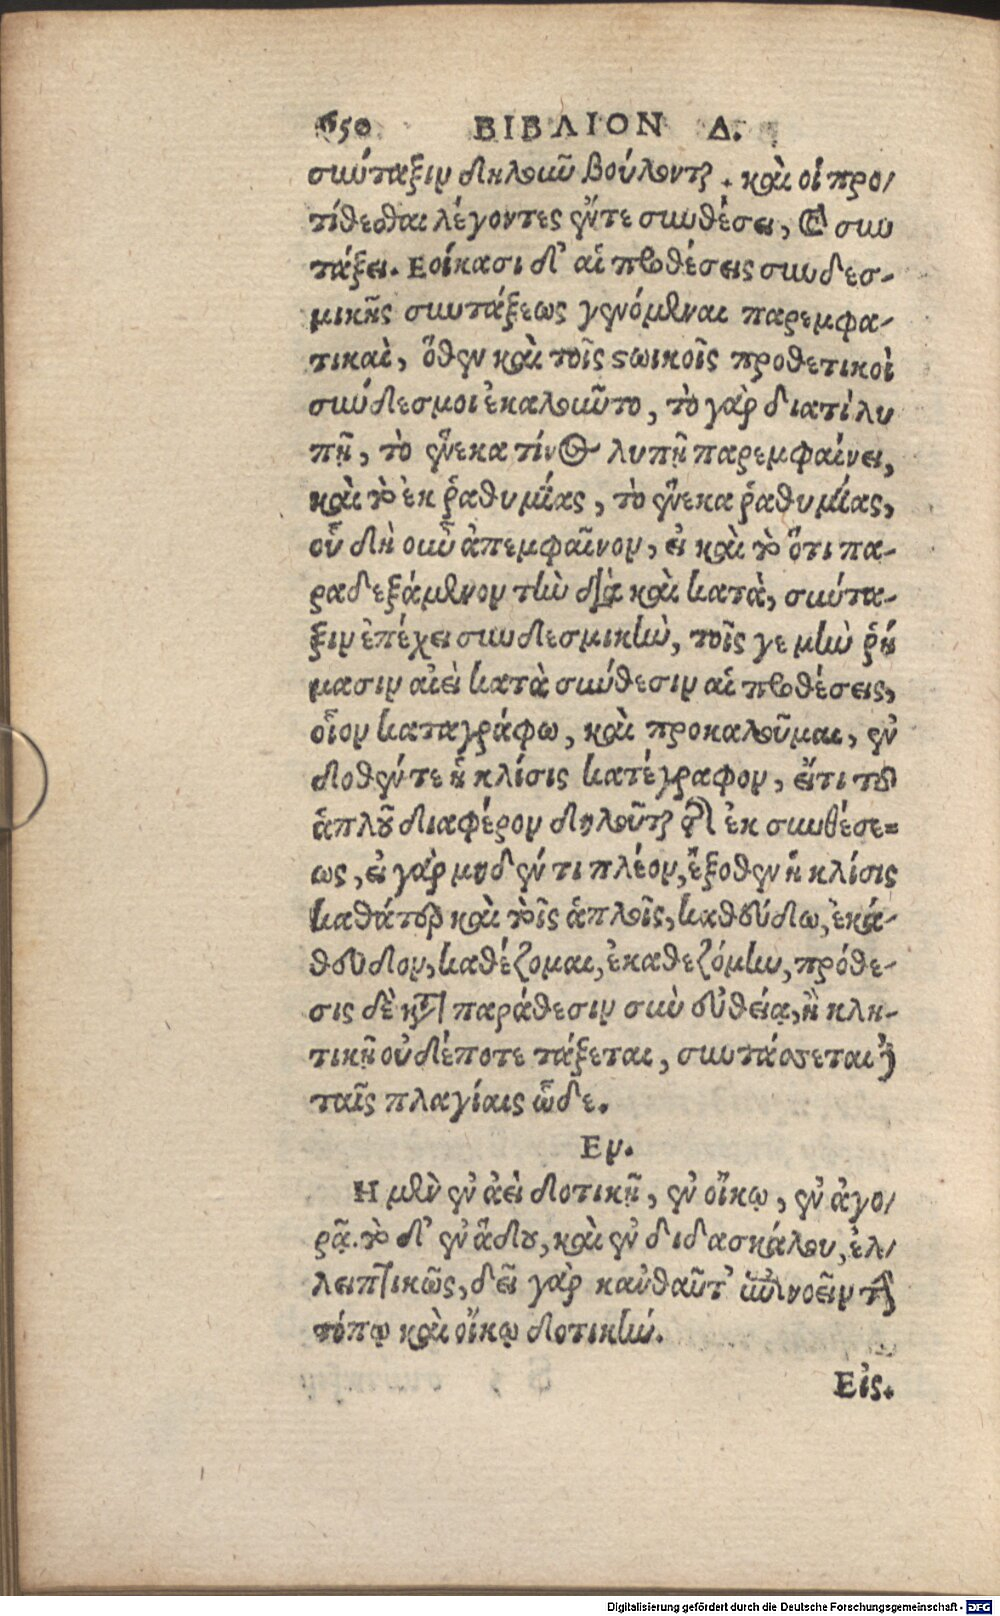 650 ΒΙΒΛΙΟΝ Δ.
σύνταξιν δηλοῦν βούλονται. καὶ οἱ προ/
τίθεσθαι λέγοντες ἔντε συνθέσει, καὶ συν
τάξει. Εοίκασι δ' αἱ προθέσεις συνδεσ-
μικῆς συντάξεως γενόμεναι παρεμφα-
τικαὶ, ὅθεν καὶ τοῖς στωικοῖς προθετικοὶ
σύνδεσμοι ἐκαλοῦντο, τὸ γὰρ διατί λυ
πῇ, τὸ ἕνεκα τίνος λυπῇ παρεμφαίνει,
καὶ τὸ ἐκ ῥαθυμίας, τὸ ἕνεκα ῥαθυμίας,
οὐ δὴ οὖν ἀπεμφαῖνον, εἰ καὶ τὸ ὅτι πα-
ραδεξάμενον τὴν διὰ καὶ κατὰ, σύντα-
ξιν ἐπέχει συνδεσμικὴν, τοῖς γε μὴν ῥή
μασιν αἰεὶ κατὰ σύνθεσιν αἱ προθέσεις,
οἷον καταγράφω, καὶ προκαλοῦμαι, ἐν
δοθέντε ἡ κλίσις κατέγραφον, ἔτι τοῦ
ἁπλοῦ διαφέρον δηλοῦται ὅτι ἐκ συνθέσε=
ως, εἰ γὰρ μηδέν τι πλέον, ἔξοθεν ἡ κλίσις
καθάπερ καὶ τοῖς ἁπλοῖς, καθεύδω, ἐκά-
θευδον, καθέζομαι, ἐκαθεζόμην, πρόθε-
σις δὲ κατὰ παράθεσιν σὺν εὐθείᾳ, ἢ κλη-
τικῇ οὐδέποτε τάξεται, συντάσσεται δὲ
ταῖς πλαγίαις ὧδε.
Εν.
Η μὲν ἐν ἀεὶ δοτικῇ, ἐν οἴκῳ, ἐν ἀγο/
ρᾷ. τὸ δ' ἐν ᾅδου, καὶ ἐν διδασκάλου, ἐλ/
λειπτικῶς, δεῖ γὰρ καὐθαῦτ' ὑπονοεῖν τῷ
τόπῳ καὶ οἴκῳ δοτικήν.
Εἰς.
Digitalisierung gefördert durch die Deutsche Forschungsgemeinschaft - DFG